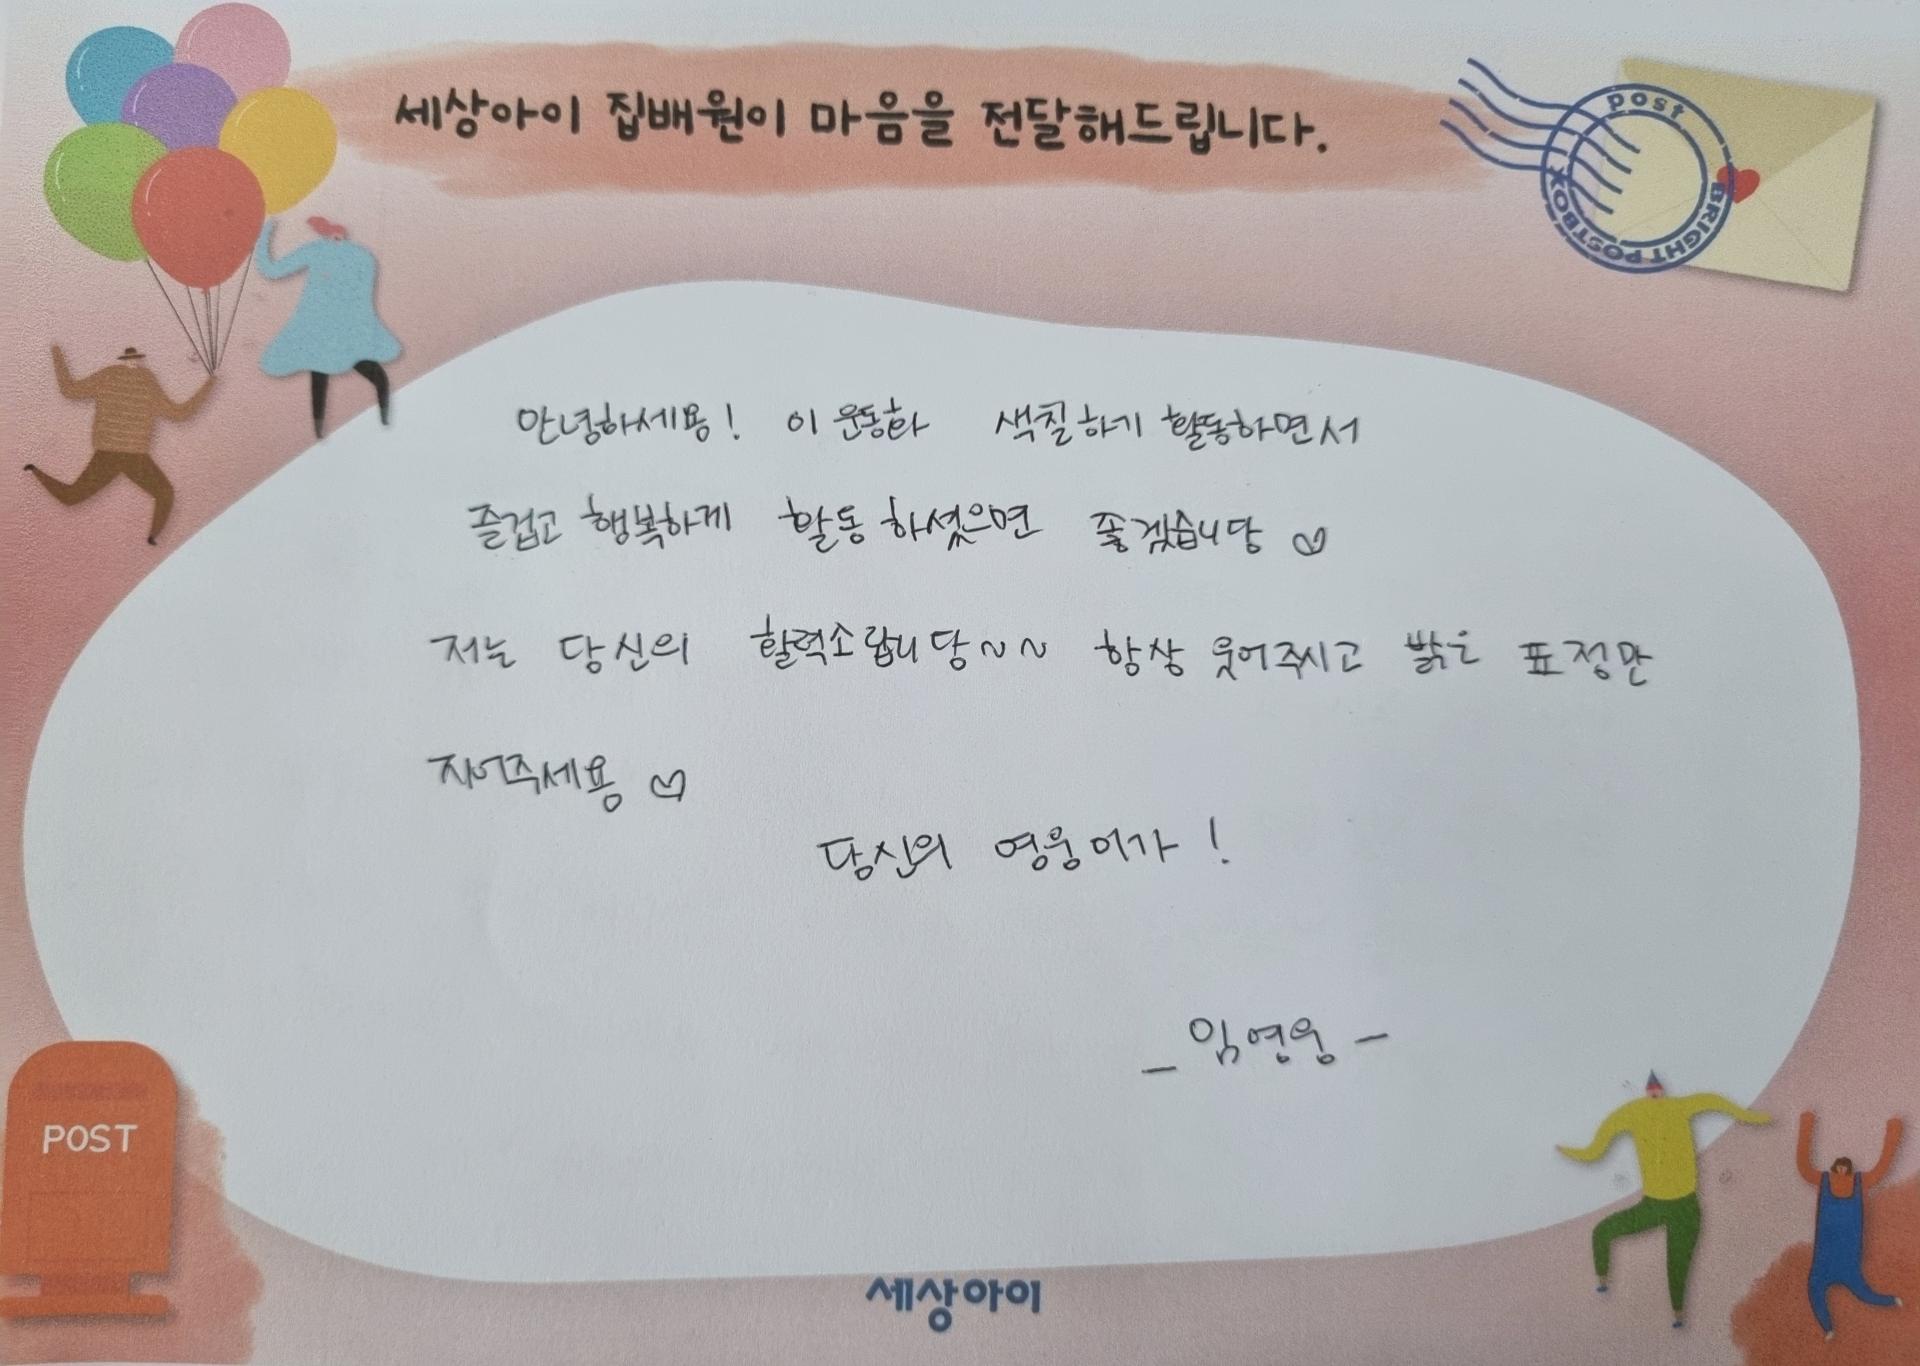 세상아이 집배원이 마음을 전달해드립니다.
post
BRIGHT POSTBOX
안녕하세용! 이 운동화 색칠하기 활동하면서
즐겁고 행복하게 활동 하셨으면 좋겠습니당 ♡
저는 당신의 활력소랍니당~~ 항상 웃어주시고 밝은 표정만
지어주세용 ♡
당신의 영웅이가!
- 임영웅 -
POST
세상아이